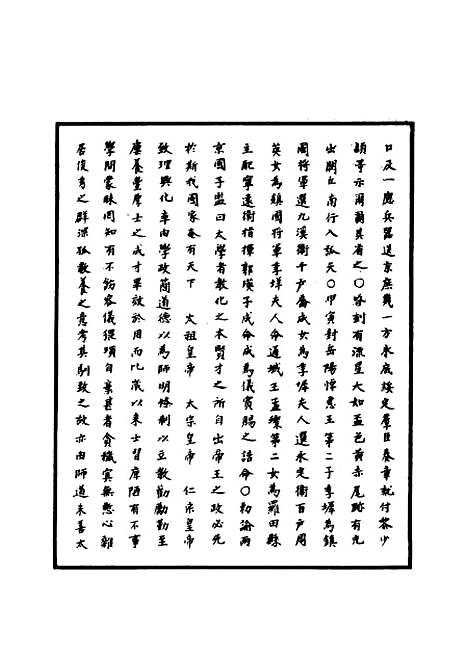 口及一應兵器送京庶幾一方永底綏定羣臣奏章就付茶少
頡等示閣爾其省之○昏刻有流星大如盃色黄赤尾跡有光
出閣丘南行入孤矢○甲寅封岳陽悼惠王第二子季墀為鎮
國將軍選九溪衛千戶 成女為季墀夫人選永定衛百戶周
英女為鎮國將軍季垟夫人命通城王孟燦第二女為羅田縣
主配寧遠衛指揮郭瑛子成命成為儀賓賜之誥命○勑諭兩
京國子監曰太學者敎化之本賢才之所自出帝王之政必先
於斯我國家奄有天下 太祖皇帝 太宗皇帝 仁宗皇帝
致理興化率由學政簡道德以為師明條制以立敎勸勵勤至
廩養豐厚士之成才畢效於用而比嵗以來士習庳陋有不事
學問蒙昧罔知有不飭容儀猥瑣自棄甚者貪穢冥無愧心雜
居俊秀之群深孤敎養之意考其馴致之故亦由師道未善太